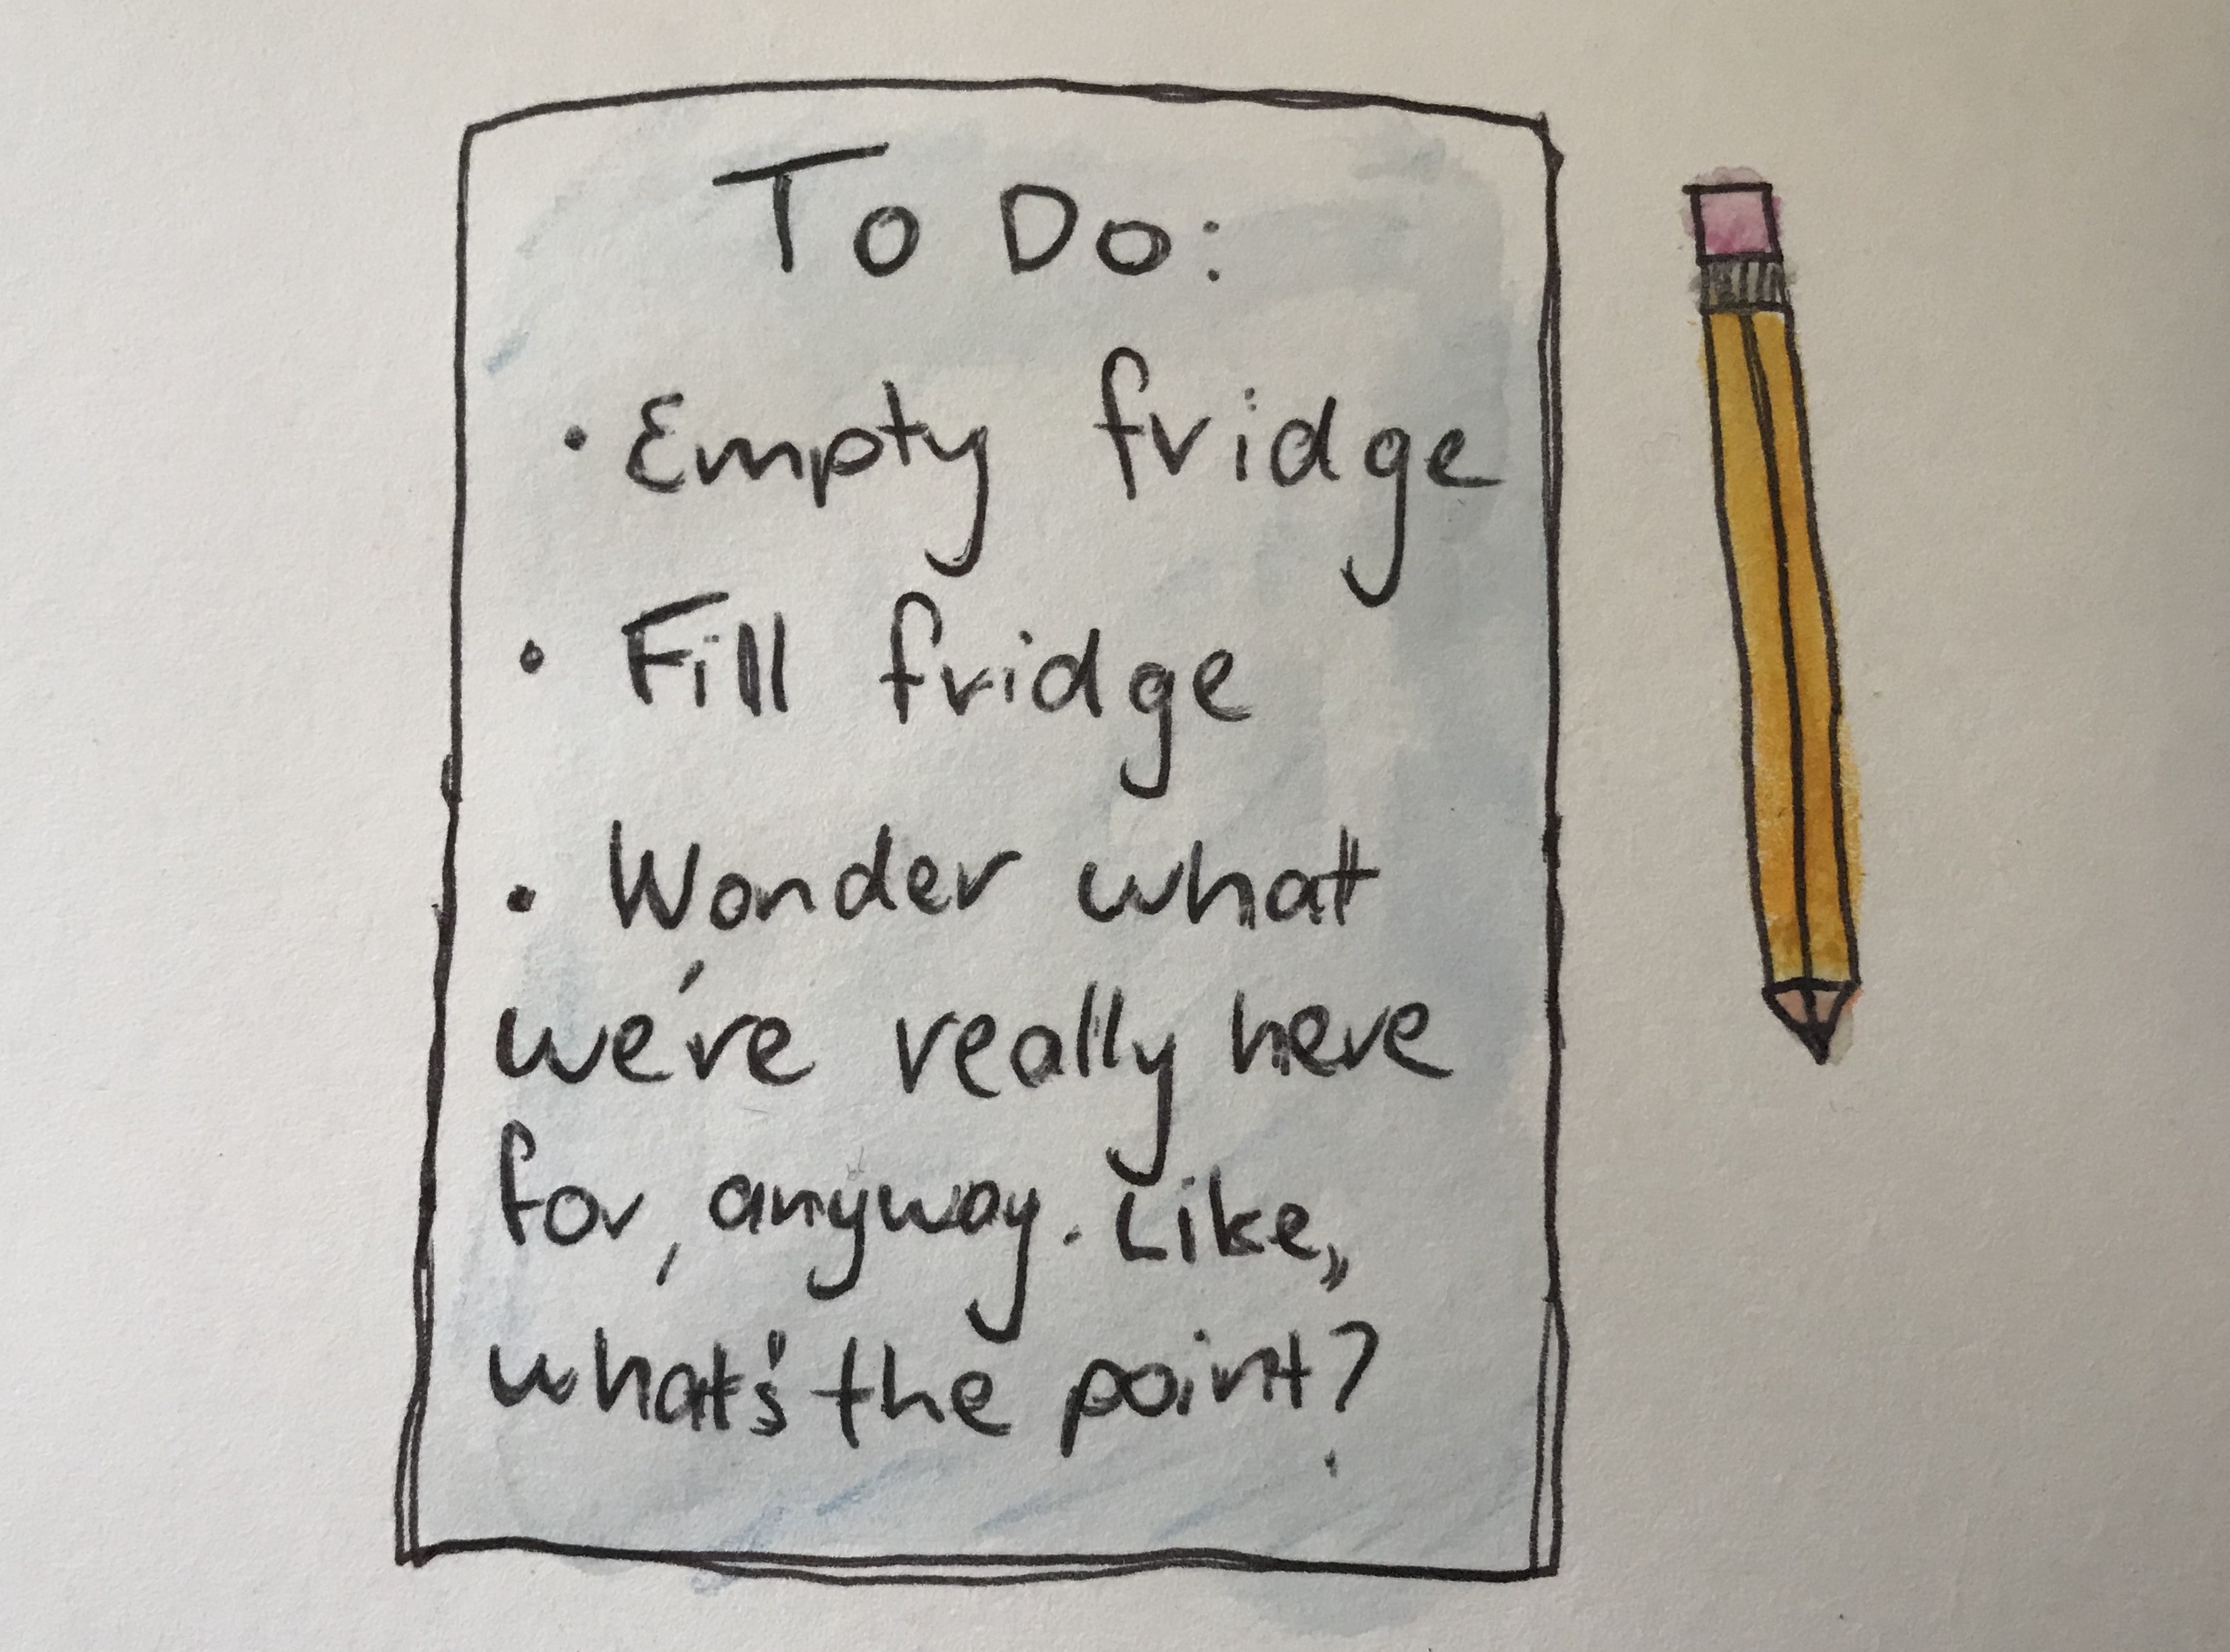 To Do:
• Empty fridge
• Fill fridge
• Wonder what
we're really here
for, anyway. Like,
what's the point?